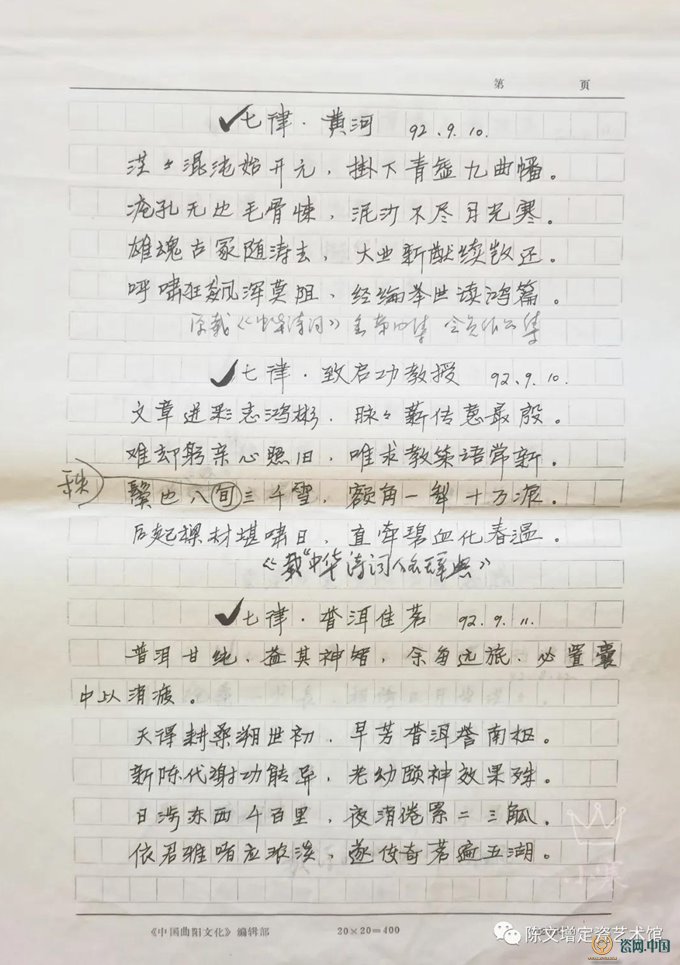 第 页
✓七律·黄河 92.9.10.
茫々混沌始开元，掛下青虚九曲幡。
疮孔无边毛骨悚，泥沙不尽月光寒。
雄魂古冢随涛去，大业新猷续敳还。
呼啸狂飙浑莫阻，经纶举世读鸿篇。
原载《中华诗词》
✓七律·致启功教授 92.9.10.
文章迸彩志鸿彬，脉々薪传意最殷。
难却躬亲心照旧，唯求教策语常新。
鬓边八旬三千雪，额角一犁十万浪。
秩
后起稞材堪啸日，直牵碧血化春温。
《载"中华诗词 》
✓七律·普洱佳茗 92.9.11.
普洱甘纯，益其神智，余每远旅，必置囊
中以消疲。
天得耕桑朔世初，早芳普洱誉南极。
新陈代谢功能异，老幼颐神效果殊。
日涉东西千百里，夜消倦累二三觚。
依君雅嗜应浓淡，遂使奇茗遍五湖。
《中国曲阳文化》编辑部 20×20=400
陈文增定瓷艺术馆
瓷网.中国